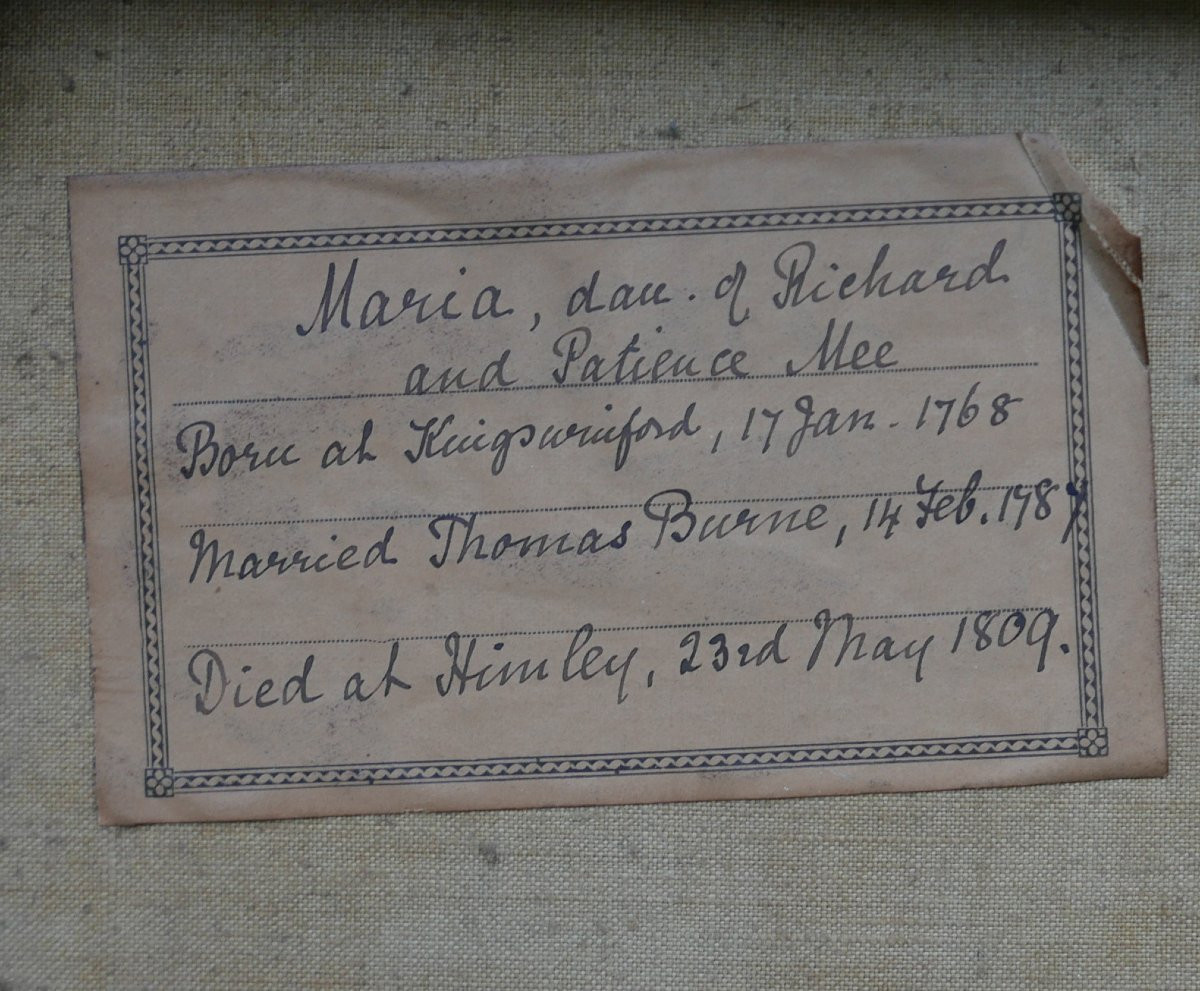 Maria, dau. of Richard
and Patience Mee
Born at Kingswinford, 17 Jan. 1768
Married Thomas Burne, 14 Feb. 1787
Died at Himley, 23rd May 1809.